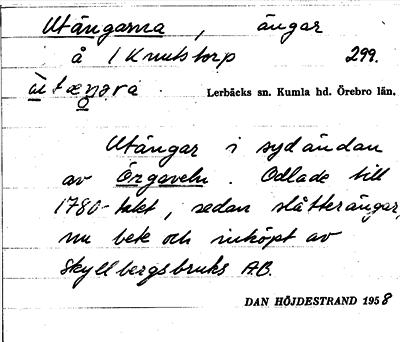 Utängarna, ängar
å 1 Knutstorp 299.
ùtæŋara Lerbäcks sn. Kumla hd. Örebro län.
Utängar i sydändan
av Örgaveln. Odlade till
1780-talet, sedan slåtterängar,
nu bete och inköpt av
Skyllbergsbruks A.B.
DAN HÖJDESTRAND 1958